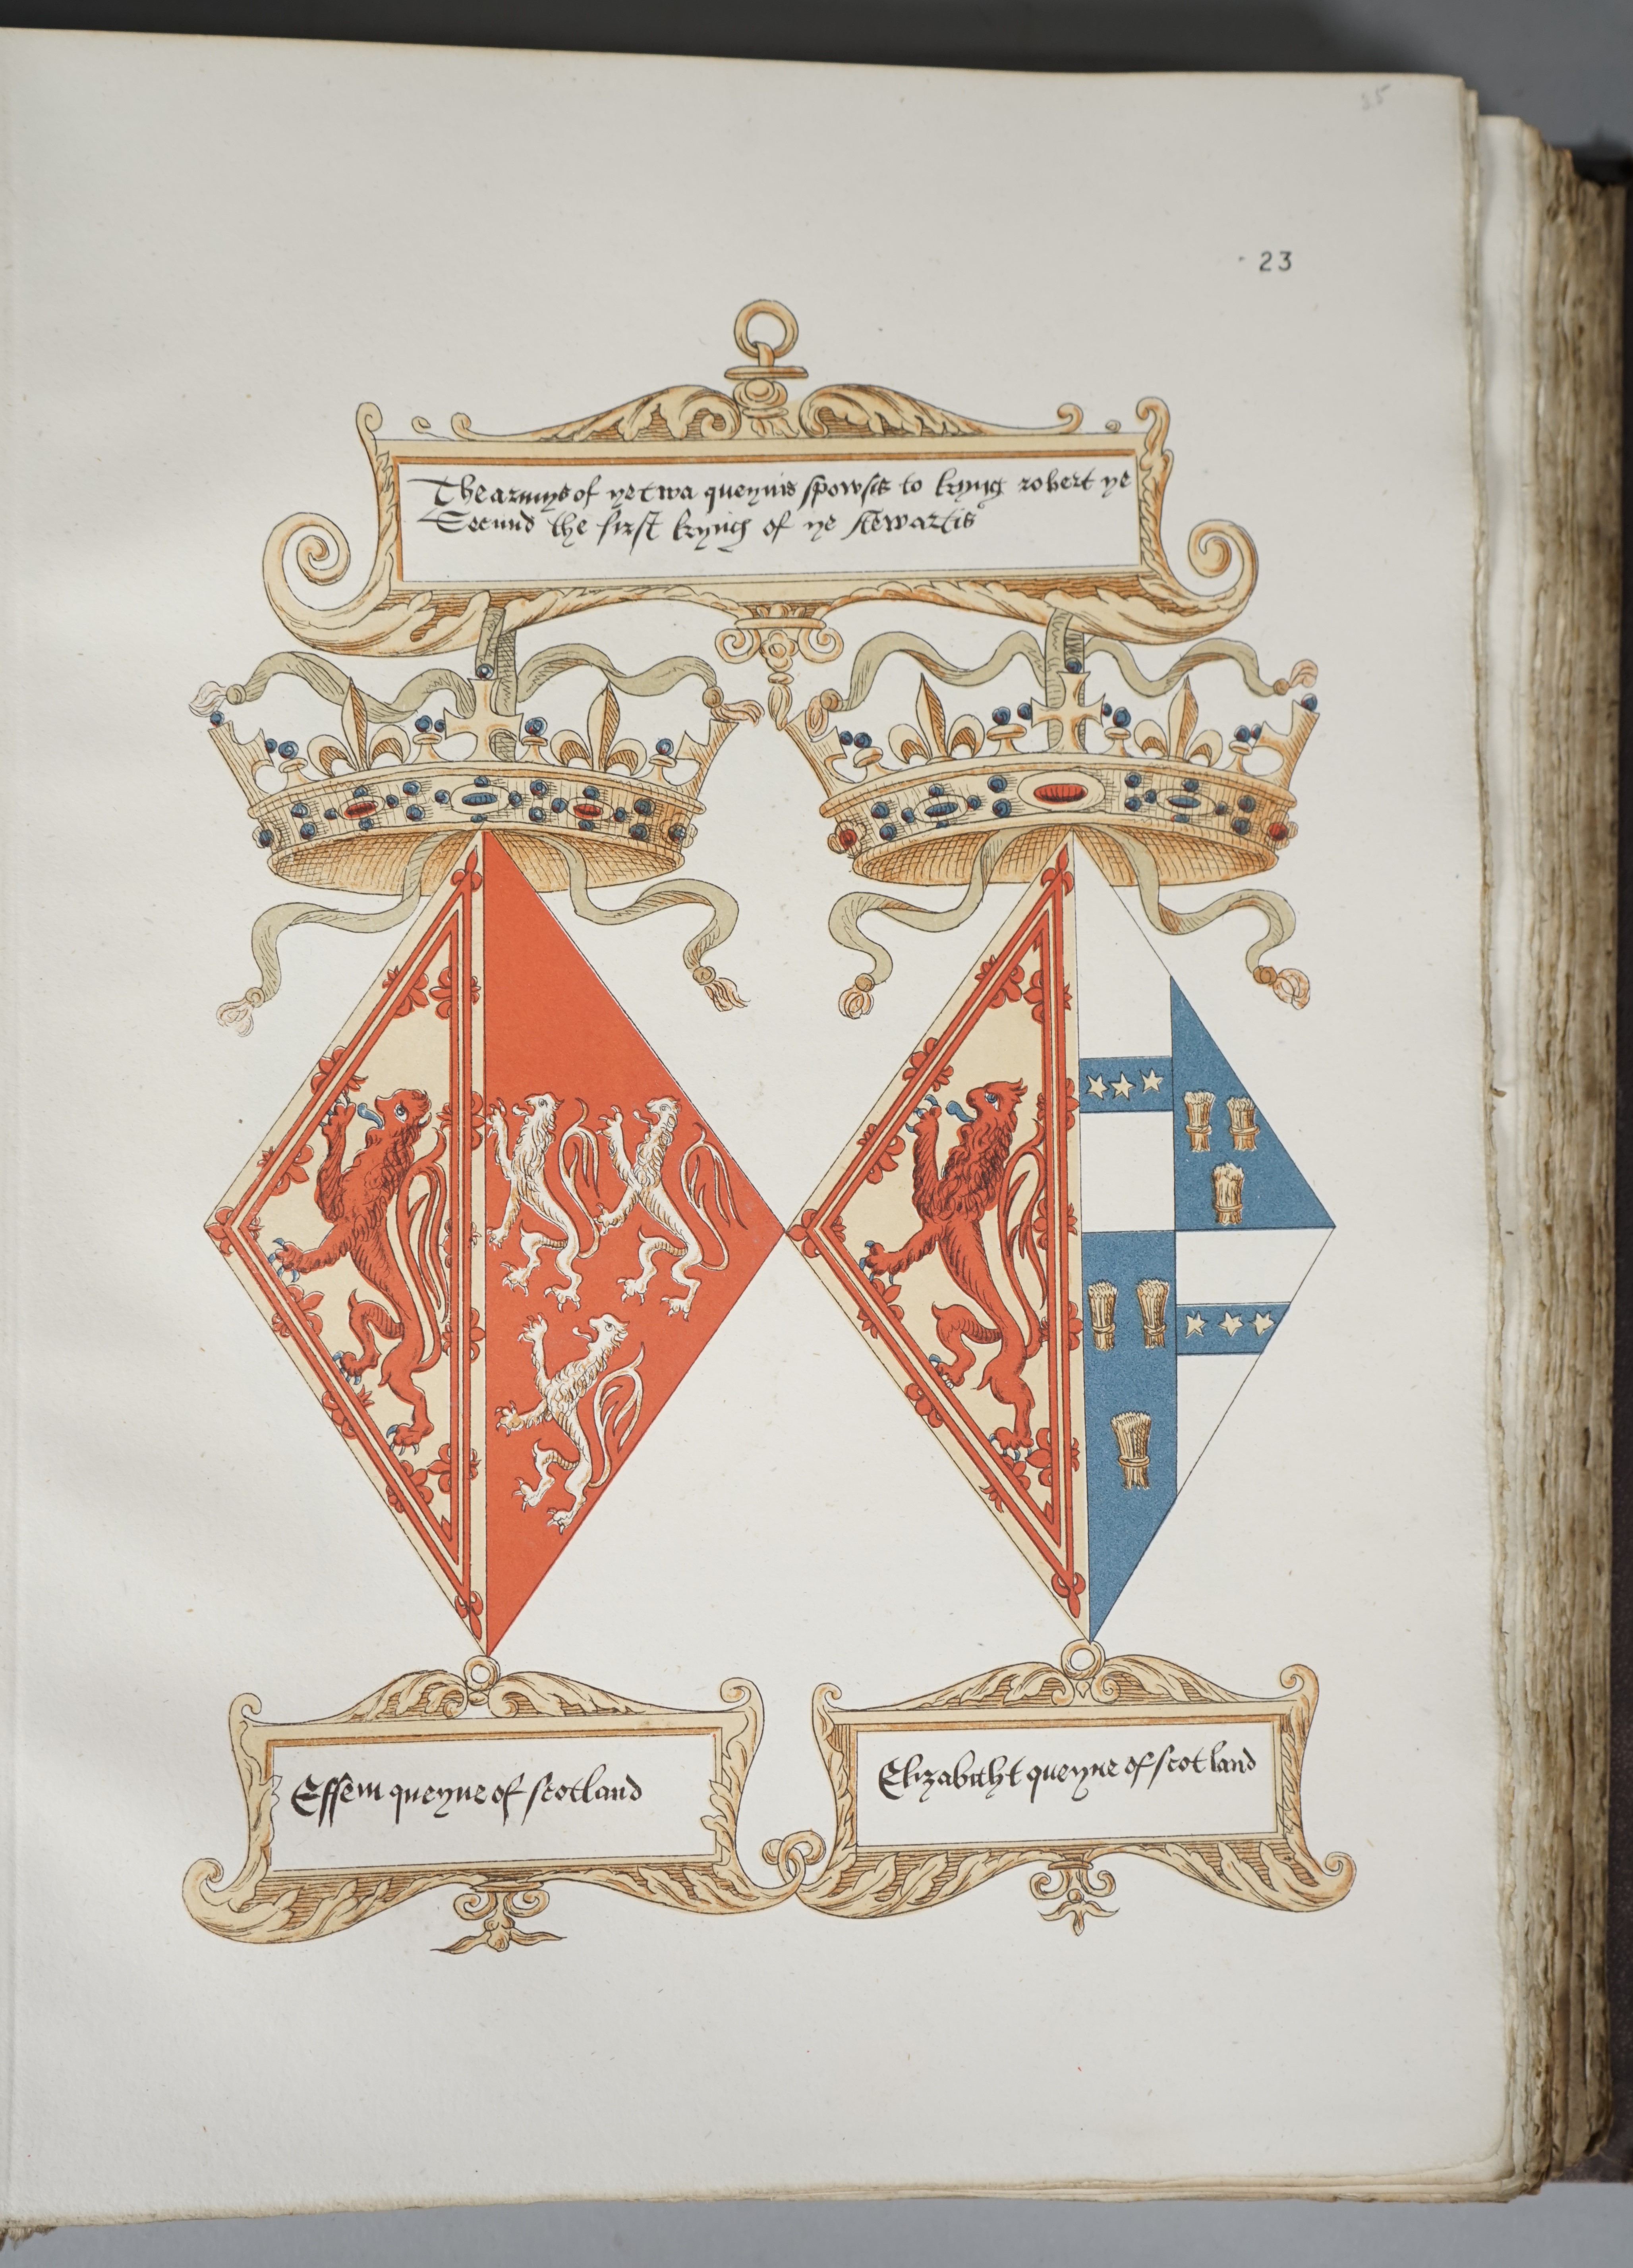 25
23
The armys of ye twa queynis spowsis to kyng robert ye
Secund the first kyng of ye stewartis
Essem queyne of scotland
Elizabitht queyne of scotland